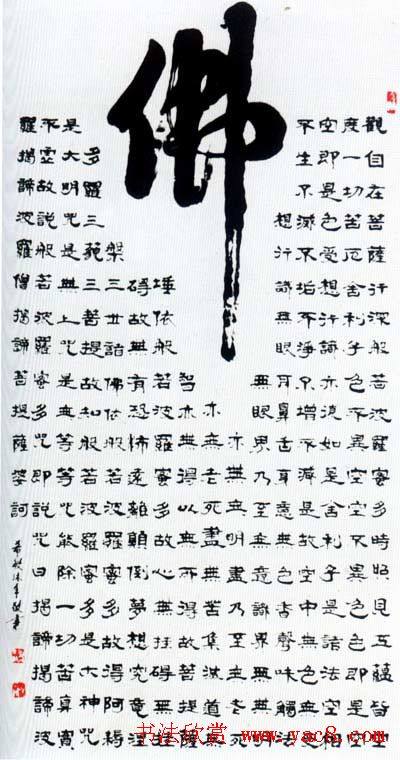 佛
觀自在菩薩行深般若波羅蜜多時照見五蘊皆空
度一切苦厄舍利子色不異空空不異色色即是空
空即是色受想行識亦復如是舍利子是諸法空相
不生不滅不垢不淨不增不減是故空中無色無受
想行識無眼耳鼻舌身意無色聲香味觸法
無眼界乃至無意識界無無明
亦無無明盡乃至無老死
亦無老死盡無苦集滅道無
智亦無得以無所得故菩提薩
埵依般若波羅蜜多故心無罣礙無罣
礙故無有恐怖遠離顛倒夢想究竟涅
槃三世諸佛依般若波羅蜜多故得阿耨
多羅三藐三菩提故知般若波羅蜜多是大神咒
是大明咒是無上咒是無等等咒能除一切苦真實
不虛故說般若波羅蜜多咒即說咒曰揭諦揭諦波
羅揭諦波羅僧揭諦菩提薩婆訶
书法欣赏 www.yac8.com